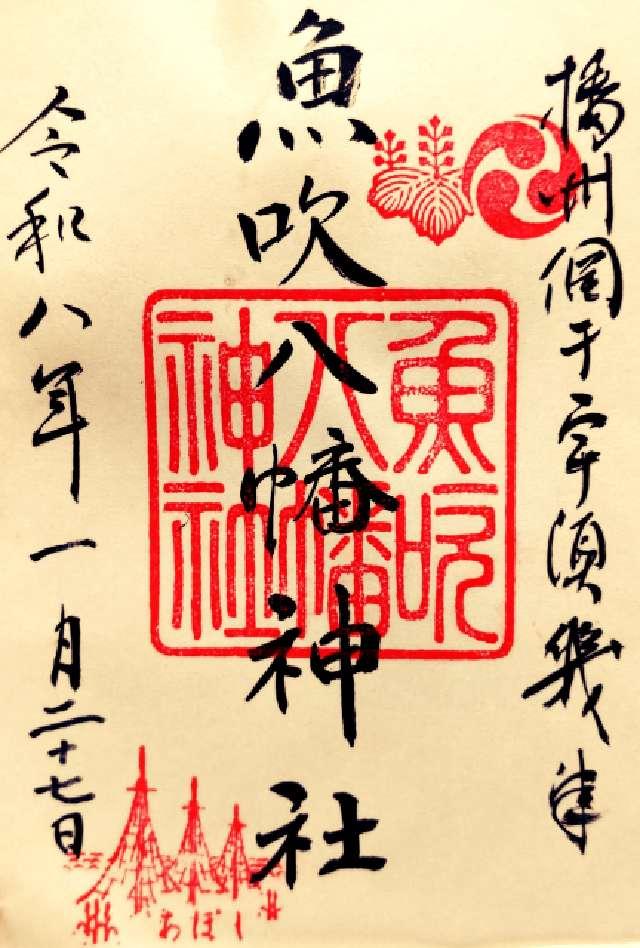 播州網干宇須幾津
魚吹八幡神社
魚吹
八幡
神社
令和八年一月二十七日
あぼし